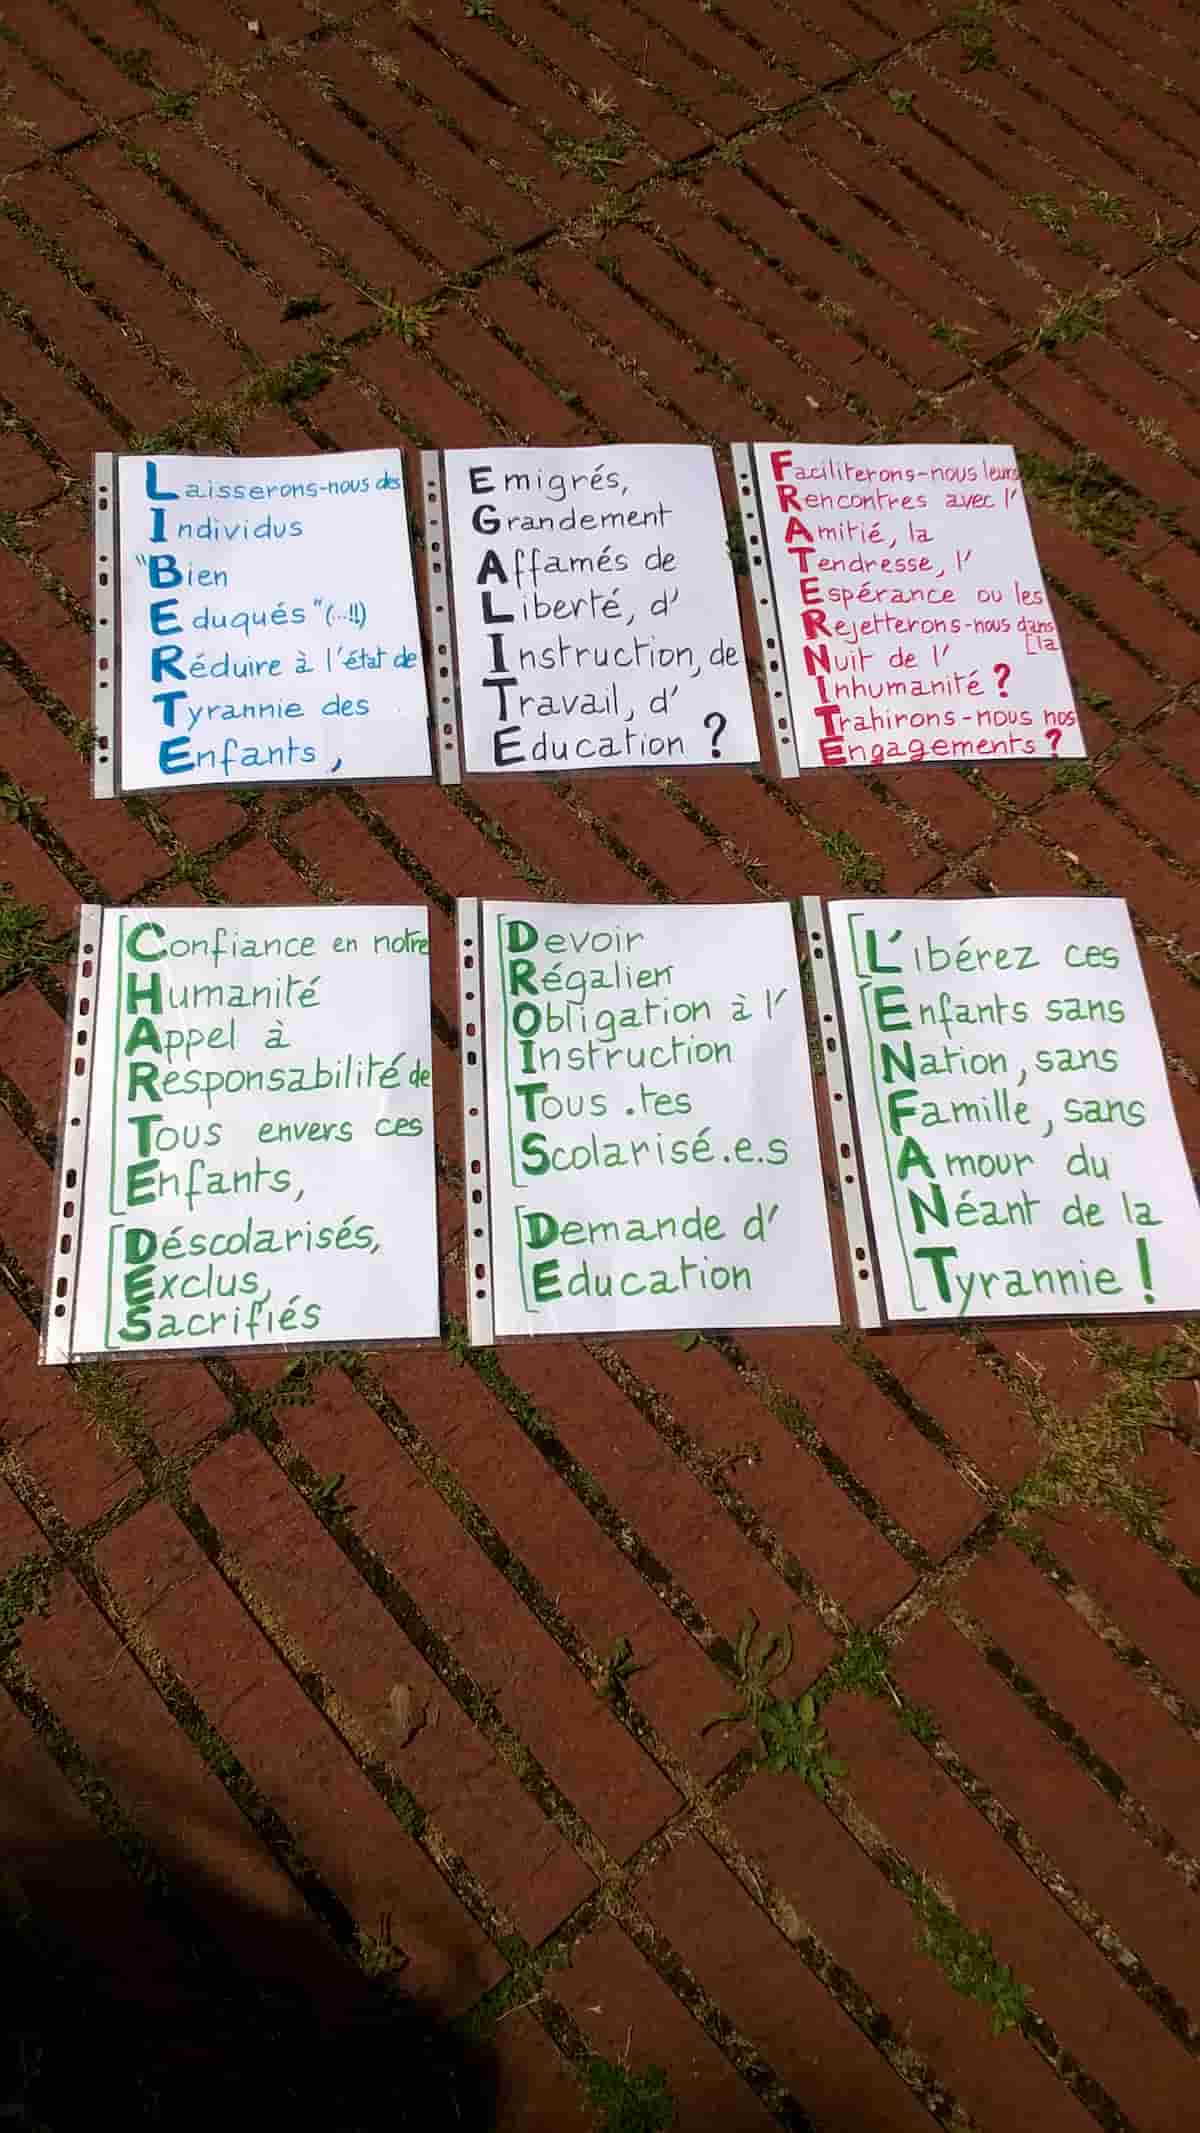 Laisserons-nous des
Individus
"Bien
Eduqués" (..!!)
Réduire à l'état de
Tyrannie des
Enfants,
Emigrés,
Grandement
Affamés de
Liberté, d'
Instruction, de
Travail, d'
Education ?
Faciliterons-nous leurs
Rencontres avec l'
Amitié, la
Tendresse, l'
Espérance ou les
Rejetterons-nous dans
[la
Nuit de l'
Inhumanité ?
Trahirons-nous nos
Engagements ?
Confiance en notre
Humanité
Appel à
Responsabilité de
Tous envers ces
Enfants,
Déscolarisés,
Exclus,
Sacrifiés
Devoir
Régalien
Obligation à l'
Instruction
Tous.tes
Scolarisé.e.s
Demande d'
Education
L'ibérez ces
Enfants sans
Nation, sans
Famille, sans
Amour du
Néant de la
Tyrannie !